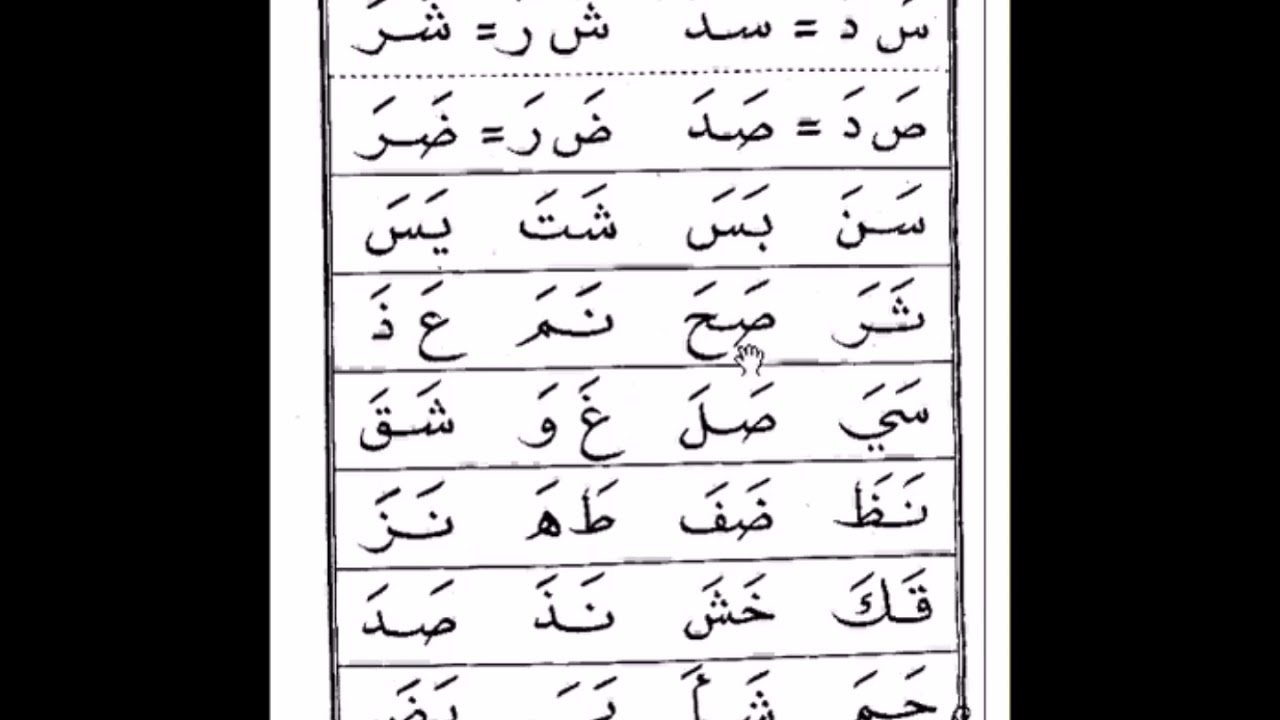 سَ دَ = سَدَ شَ رَ = شَرَ
صَ دَ = صَدَ ضَ رَ = ضَرَ
سَنَ بَسَ شَتَ يَسَ
ثَرَ صَحَ نَمَ عَ ذَ
سَيَ صَلَ غَ وَ شَقَ
نَظَ ضَفَ طَ هَ نَزَ
قَكَ خَشَ نَذَ صَدَ
حَمَ شَأَ